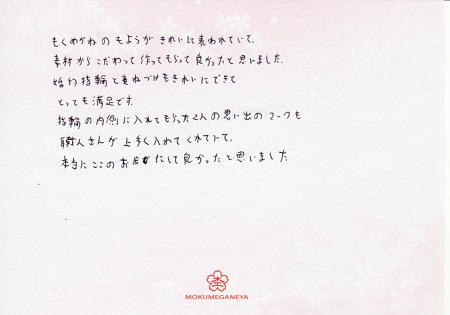 もくめがねのもようがきれいに表われていて、
素材からこだわって作ってもらって良かったと思いました。
婚約指輪と重ねづけもきれいにできて
とっても満足です。
指輪の内側に入れてもらった2人の思い出のマークも
職人さんが上手く入れてくれてて、
本当にここのお店にして良かったと思いました
MOKUMEGANEYA